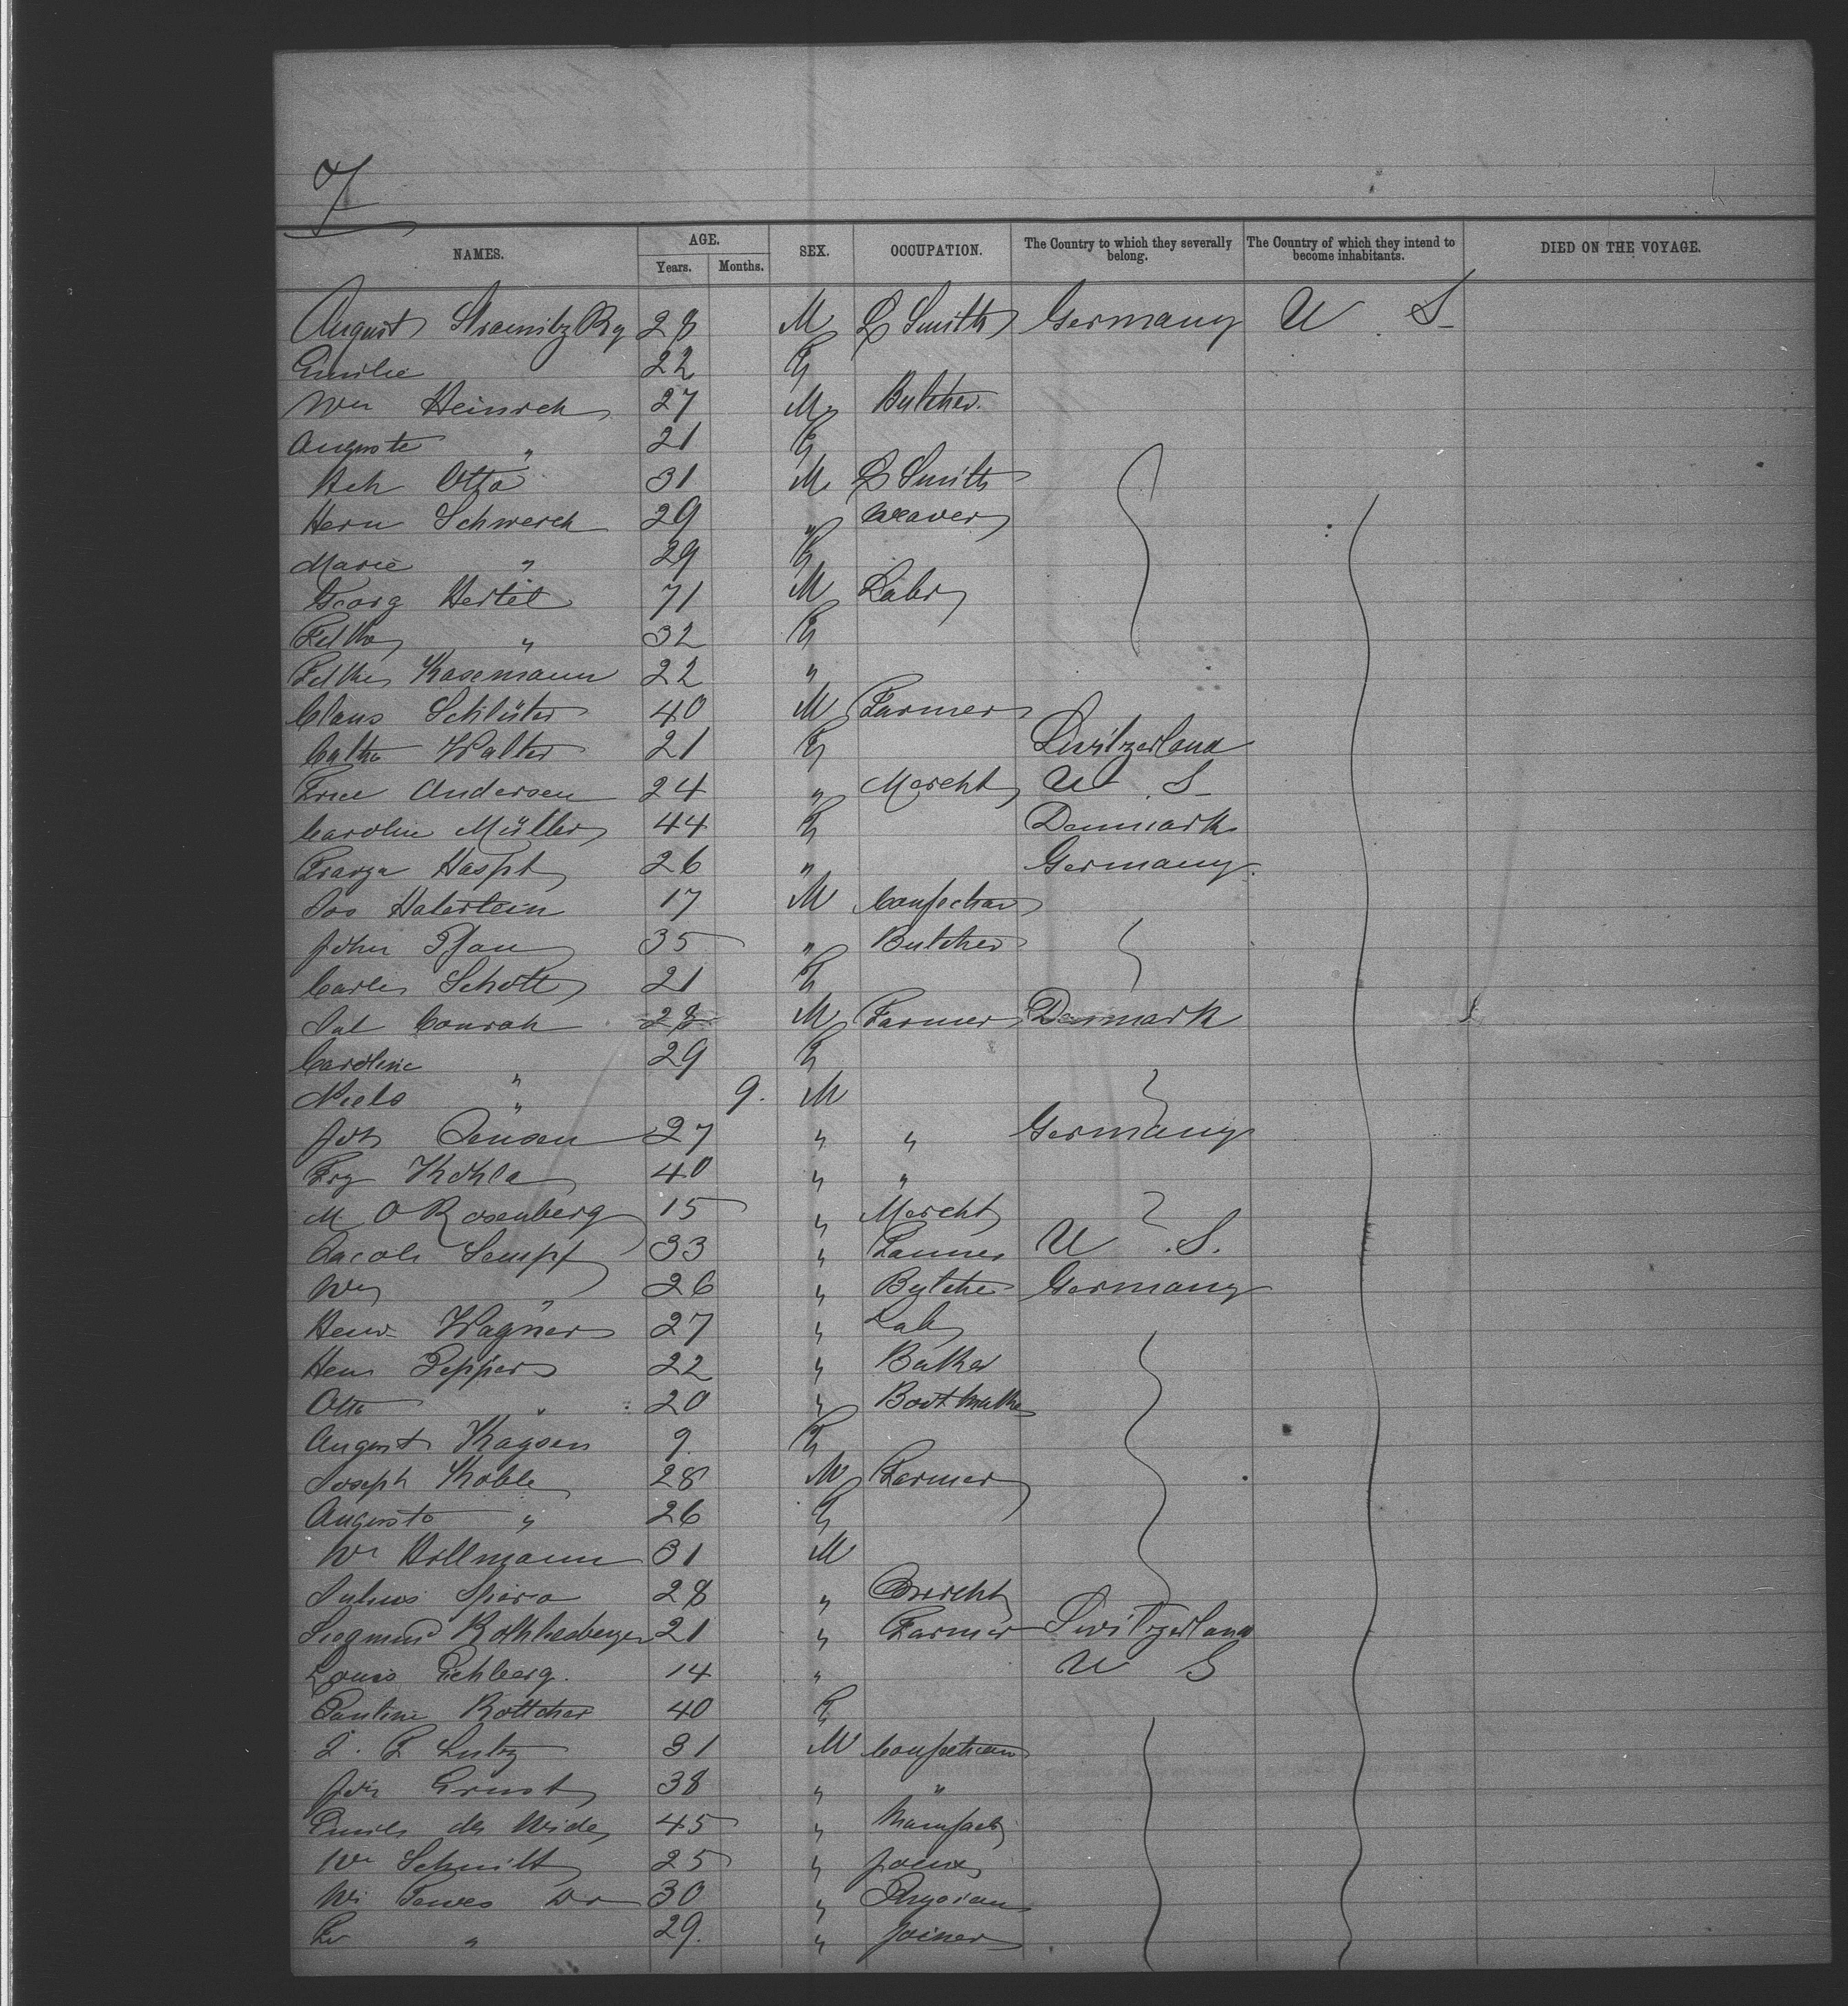 7
NAMES. AGE. Years. Months. SEX. OCCUPATION. The Country to which they severally belong. The Country of which they intend to become inhabitants. DIED ON THE VOYAGE.
August 28 M Smith Germany U. S.
Emilie 22 F
Wm Heinrich 27 M Butcher.
Auguste " 21 F
Hch Otto 31 M Smith
Herm Schwerch 29 " Weaver
Marie " 29 F
Georg Hertel 71 M Labr
" 32 F
Kasemann 22 "
Claus Schlüter 40 M Farmer
Cathe Walter 21 F Switzerland
Andersen 24 " Mercht U. S.
Caroline Müller 44 F Denmark
Haspt 26 " Germany.
Jos Haberlein 17 M
John Pfau 35 " Butcher
Schott 21 F
Conrah 28 M Farmer Denmark
Caroline " 29 F
Niels " 9. M
Joh Jensen 27 " " Germany
Frz 40 " "
M O Rosenberg 15 " Mercht
Jacob Sempf 33 " U. S.
Wm " 26 " Butche Germany
Henr Wagner 27 " Lab
Henr Pepper 22 " Baker
Otto " 20 " Bootmake
August Kaysen 9. F
Joseph Koble 28 M Farmer
Augusta " 26 F
Wm Hollmann 31 M
Julius Spiro 28 " Mercht
Siegmund Rothlesberger 21 " Farmer Switzerland
Louis Eichberg. 14 " U S
Pauline Rottcher 40 F
J. F Lutz 31 M
Joh Ernst 38 " "
Emil de Wide 45 " Manufact
Wm Schmitt 25 "
Wm Tewes Dr 30 "
Fr " 29. " Joiner